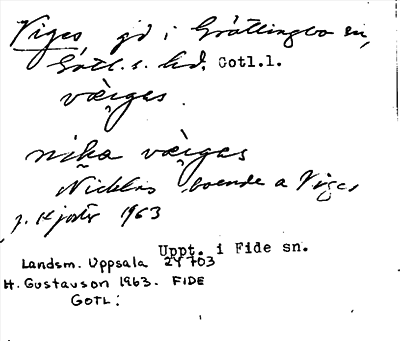 Viges gd i Gröttlingbo sn,
Gotl. s. hd. Gotl.l.
væigas.
nika væigas
Nicklas boende a Viges
1963
Uppt. i Fide sn.
Landsm. Uppsala 24703
H. Gustavson 1963. FIDE
GOTL: